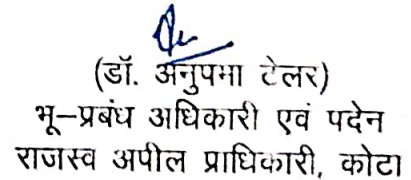 (डॉ. अनुपमा टेलर)
भू-प्रबंध अधिकारी एवं पदेन
राजस्व अपील प्राधिकारी, कोटा